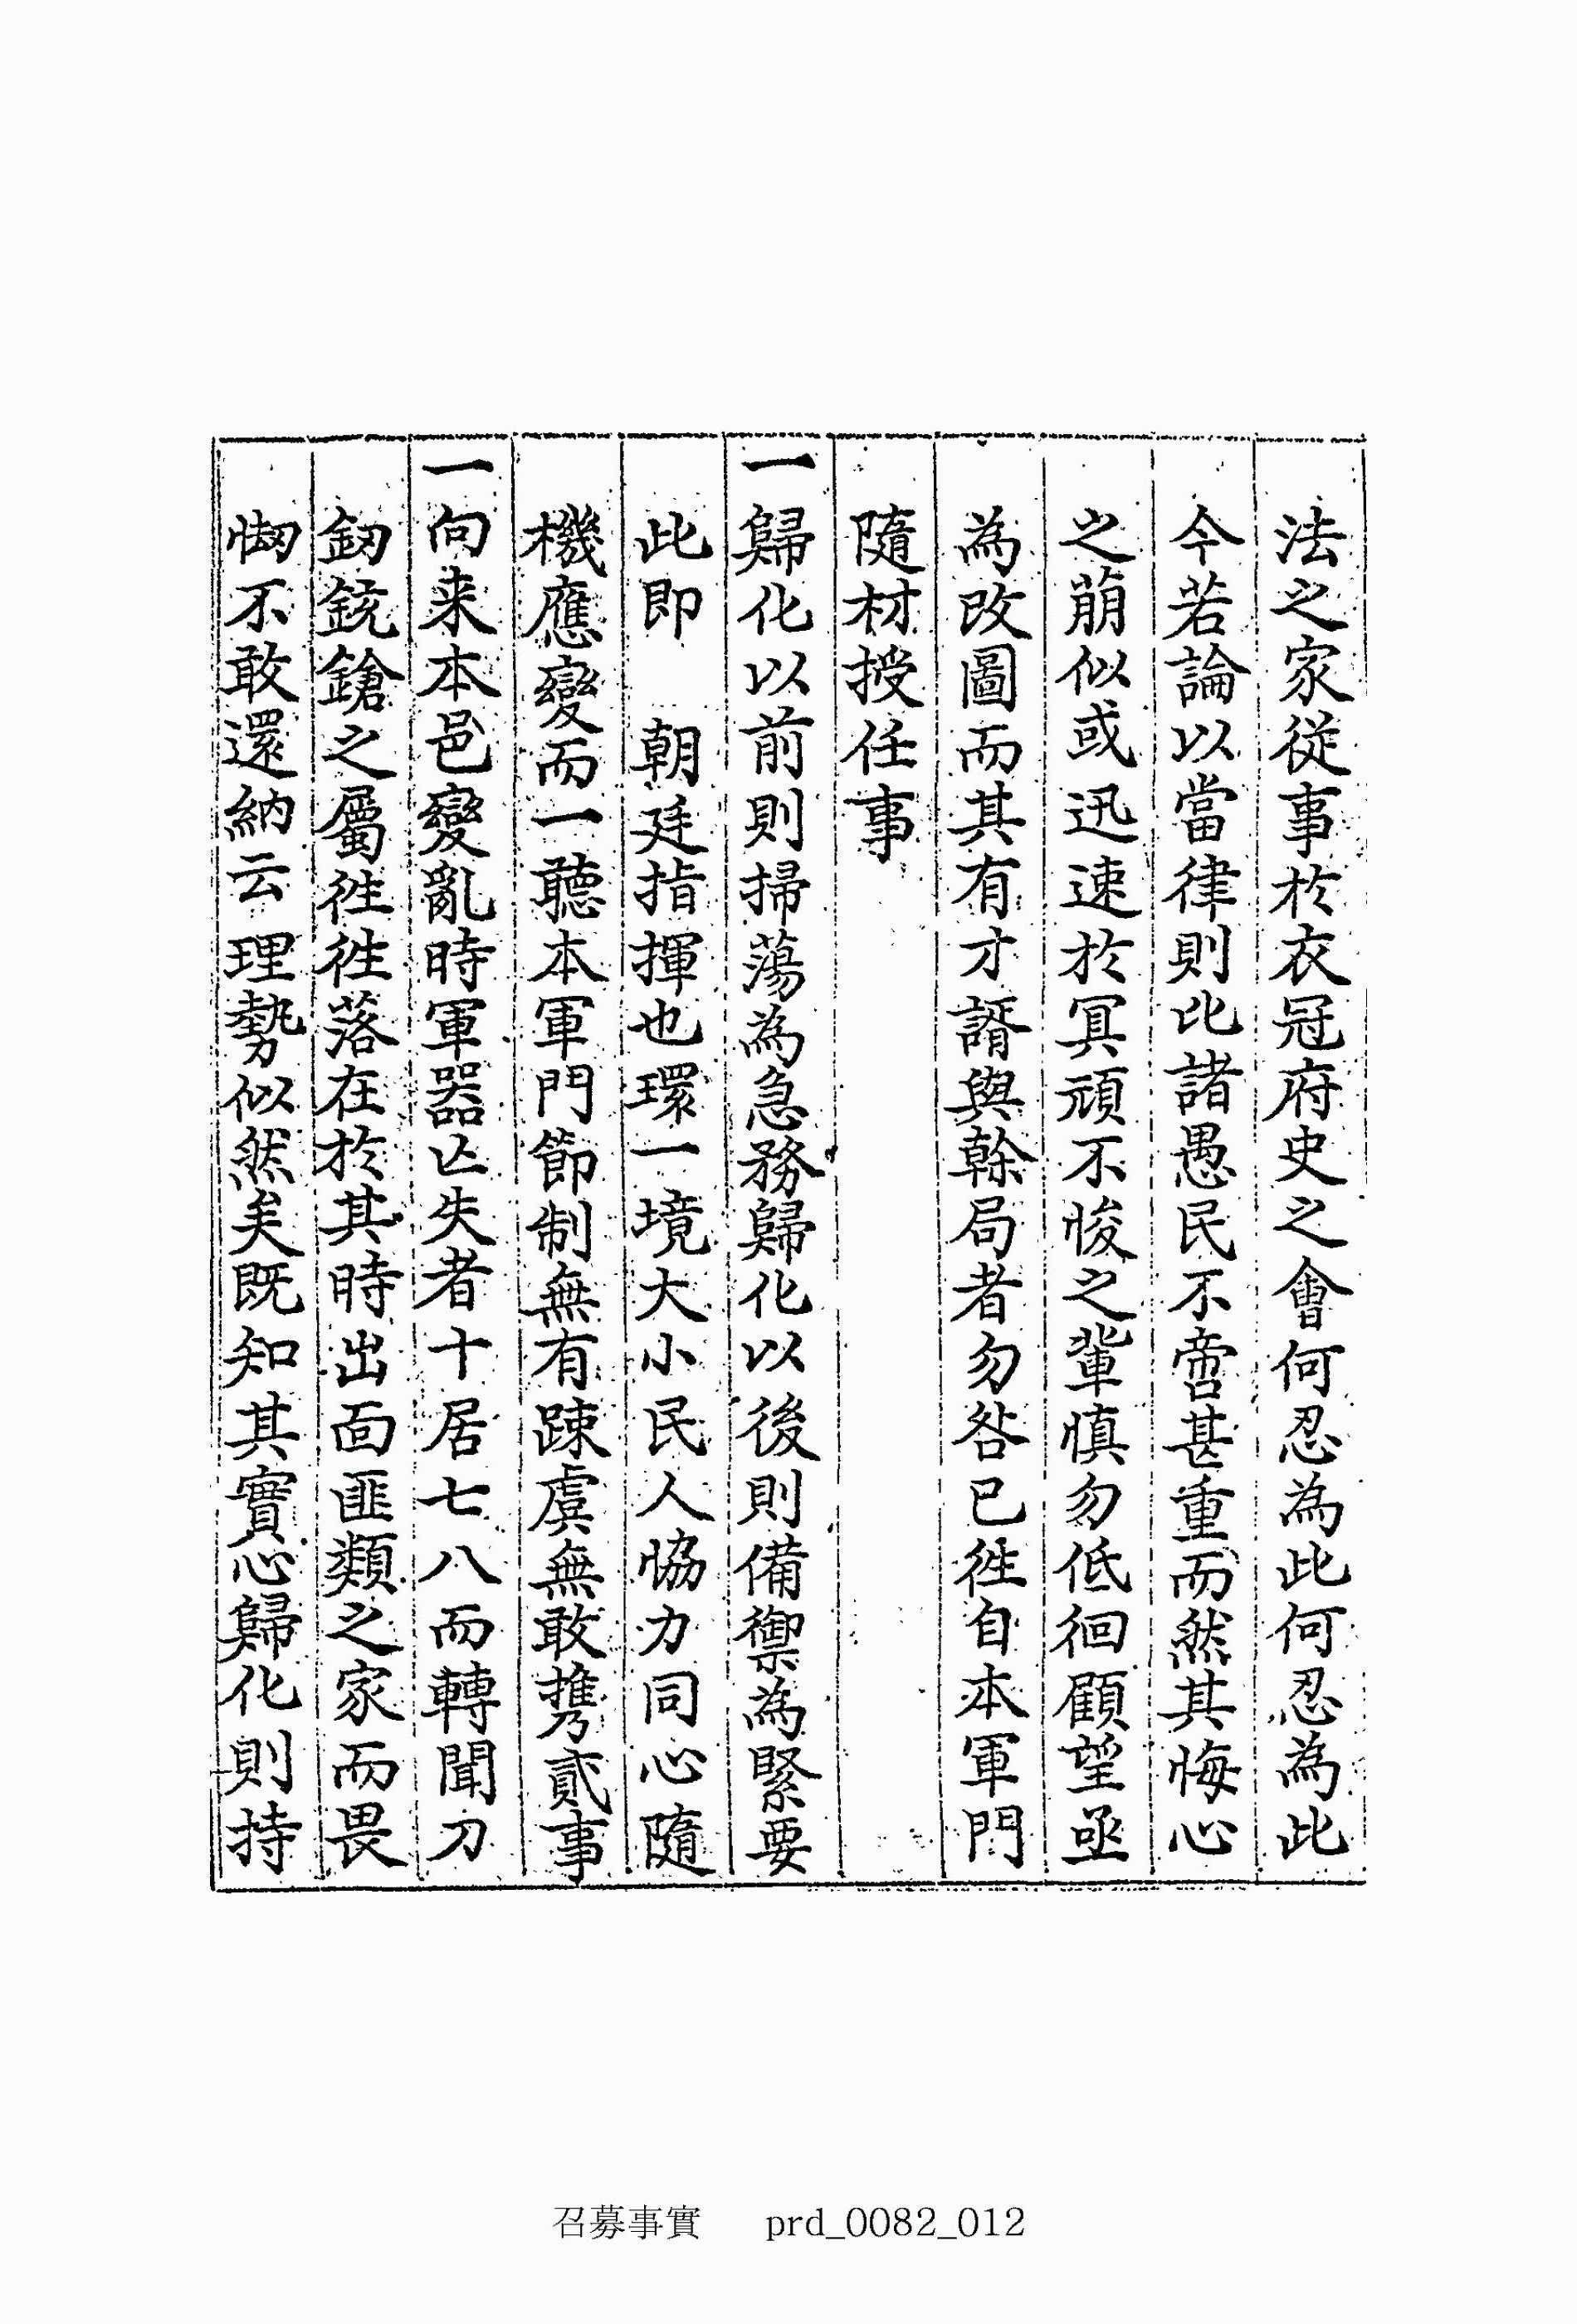 法之家從事於衣冠府史之會何忍爲此何忍爲此
今若論以當律則比諸愚民不啻甚重而然其悔心
之萠似或迅速於冥頑不悛之輩愼勿低徊顧望亟
爲改圖而其有才諝與幹局者勿咎已徃自本軍門
隨材授任事
一歸化以前則掃蕩爲急務歸化以後則備禦爲緊要
此即　朝廷指揮也環一境大小民人恊力同心隨
機應變而一聽本軍門節制無有踈虞無敢携貳事
一向来本邑變亂時軍器亡失者十居七八而轉聞刀
釰銃鎗之屬徃徃落在於其時出面匪類之家而畏
㤼不敢還納云理勢似然矣既知其實心歸化則持
召募事實 prd_0082_012